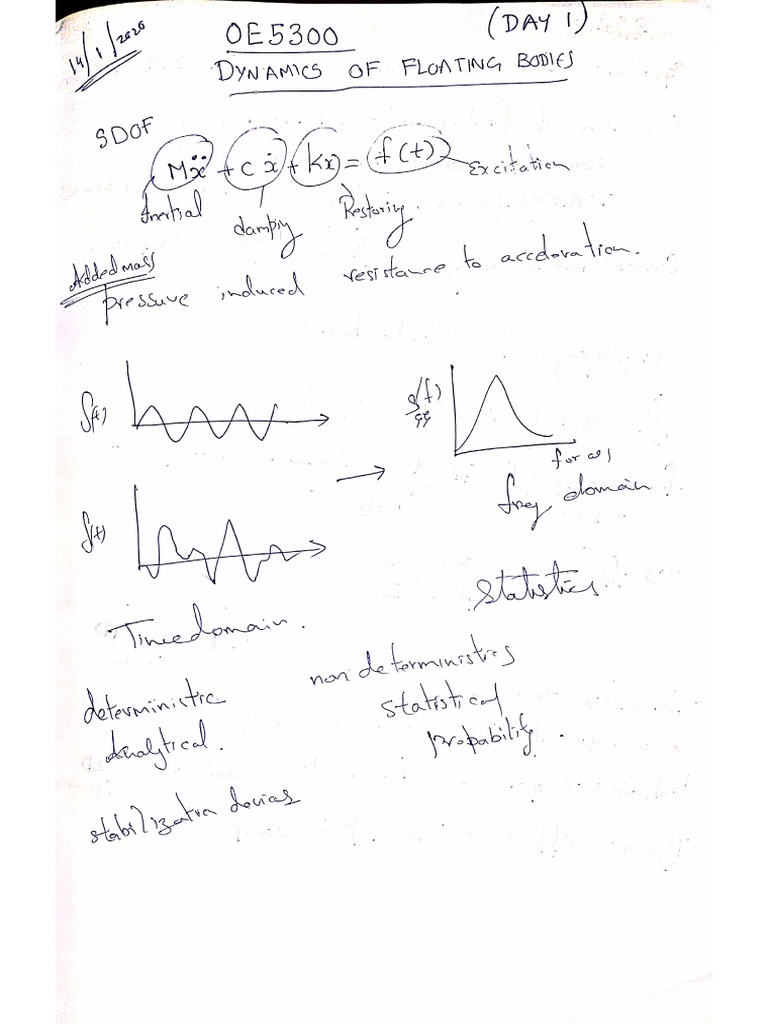 14/1/2020
OE5300
(DAY 1)
DYNAMICS OF FLOATING BODIES
SDOF
Mẍ + c ẋ + Kx = f(t)
Excitation
Inertial
damping
Restoring.
Added mass
pressure induced resistance to acceleration.
f(t)
for ω,
freq domain.
f(t)
Statistics
Timedomain.
deterministic
non deterministics
Analytical.
statistical
probability.